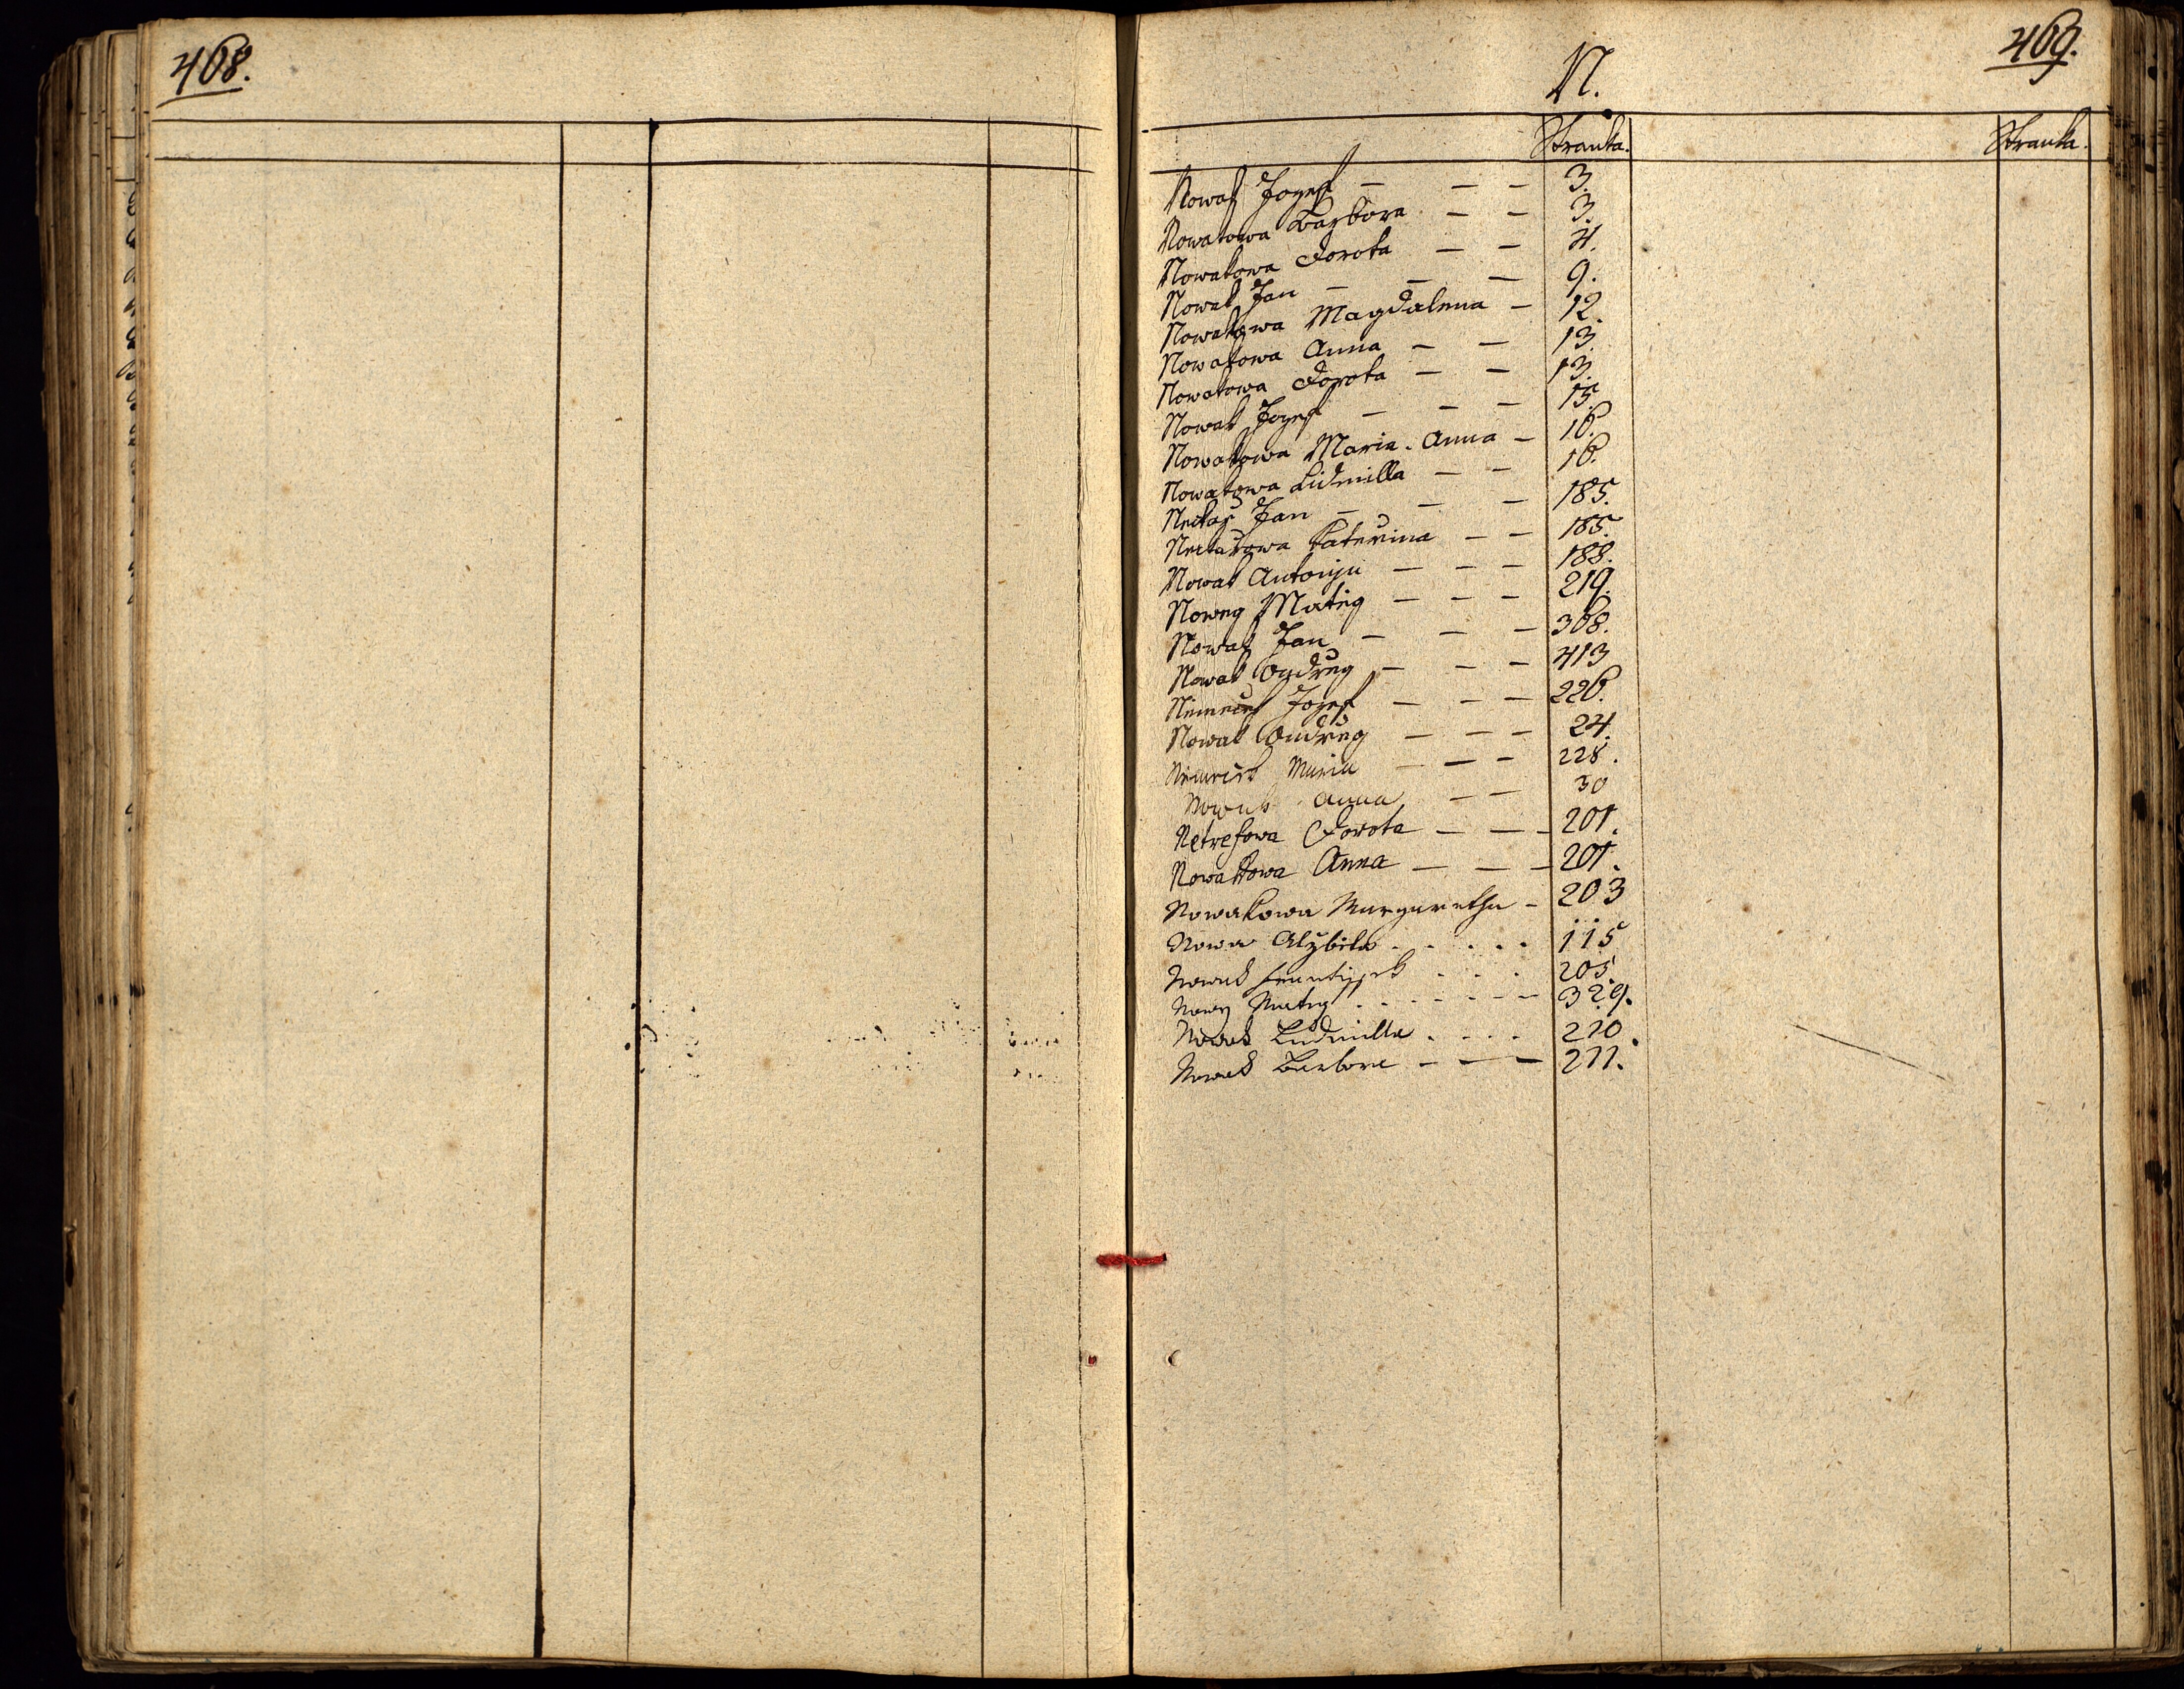 468.
469.
N.
Stranka. Stranka.
Nowak Jozef — — — 3.
Nowakowa Barbora — — 3.
Nowakowa Dorota — — 4.
Nowak Jan — — — 9.
Nowakowa Magdalena — 12.
Nowakowa Anna — — 13.
Nowakowa Dorota — — 13.
Nowak Jozef — — — 15.
Nowakowa Maria Anna — 16.
Nowakowa Lidmilla — — 16.
Nectař Jan — — — 185.
Nectařowa Kateřina — — 185.
Nowak Antonjn — — — 188.
Nowey Matěg — — — 219.
Nowak Jan — — — 368.
Nowak Ondřeg — — — 413
Němeček Jozef — — — 226.
Nowak Ondřeg — — — 24.
Maria — — — 228.
Nowak Anna — — 30
Netrefowa Dorota — — — 201.
Nowakowa Anna — — — 201.
Nowakowa Margaretha — 203
Nowa Alžběta . . . . . 115
Nowak Frantissek . . . 205.
Nowy Matěg . . . . — — 329.
Nowak Ludmilla . . . . 210.
Nowak Barbora — — — 211.